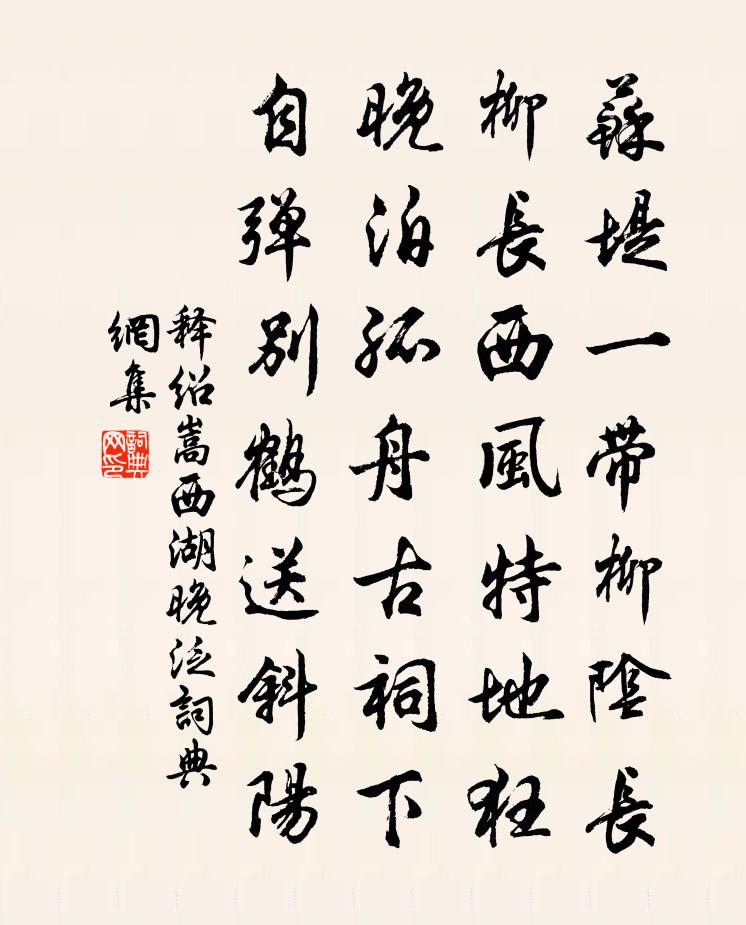 蘇堤一帶柳陰長
柳長西風特地狂
晚泊孤舟古祠下
自弹别鶴送斜陽
释绍嵩西湖晚泛詞典
網集
詞典
网印